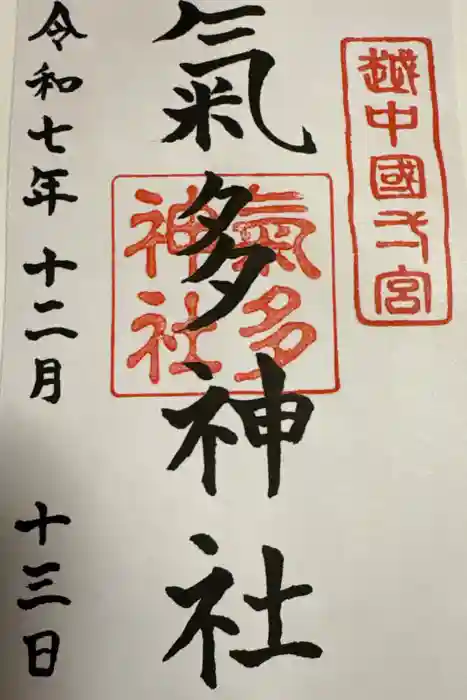 越中國一宮
氣多神社
氣多
神社
令和七年十二月十三日